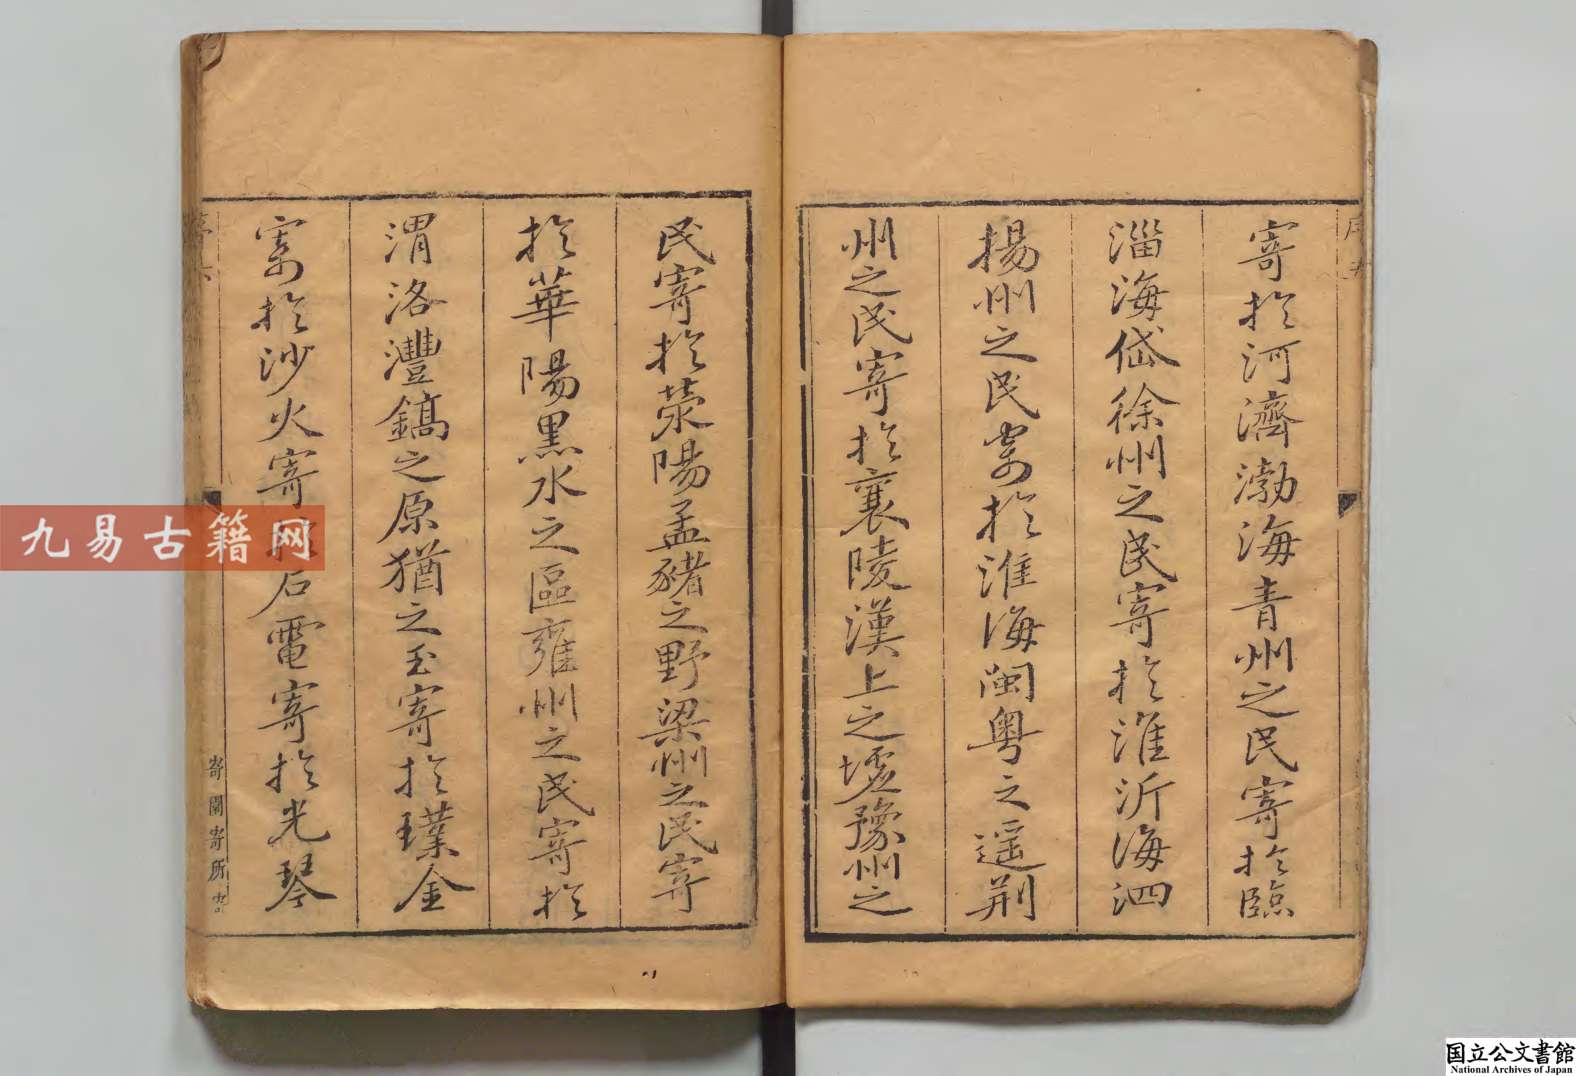 寄於河濟渤海青州之民寄於臨
淄海岱徐州之民寄於淮沂海泗
揚州之民寄於淮海閩粤之遥荆
州之民寄於襄陵漢上之墟豫州之
民寄於滎陽孟豬之野梁州之民寄
於華陽黒水之區雍州之民寄於
渭洛灃鎬之原猶之玉寄於璞金
寄於沙火寄石電寄於光琴
序六
寄園寄所寄
九易古籍网
国立公文書館
National Archives of Japan